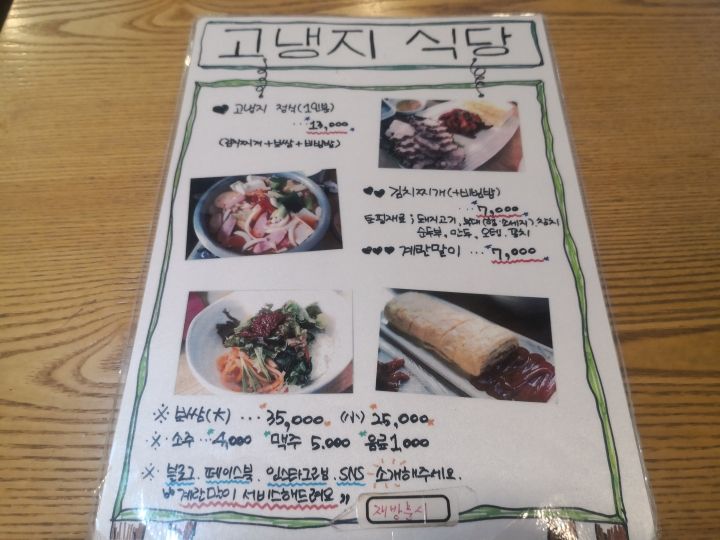 고냉지 식당
고냉지 정식(1인분)
...13,000
(김치찌개+보쌈+비빔밥)
김치찌개(+비빔밥)
...7,000
토핑재료; 돼지고기, 부대(햄.소세지), 참치
순두부, 만두, 오뎅, 꽁치
계란말이 ...7,000
※ 보쌈(大) ...35,000 (小) 25,000
※ 소주 ...4,000 맥주 5.000 음료 1000
※ 블로그. 페이스북. 인스타그램. SNS 소개해주세요.
"계란말이 서비스해드려요"
재방문시